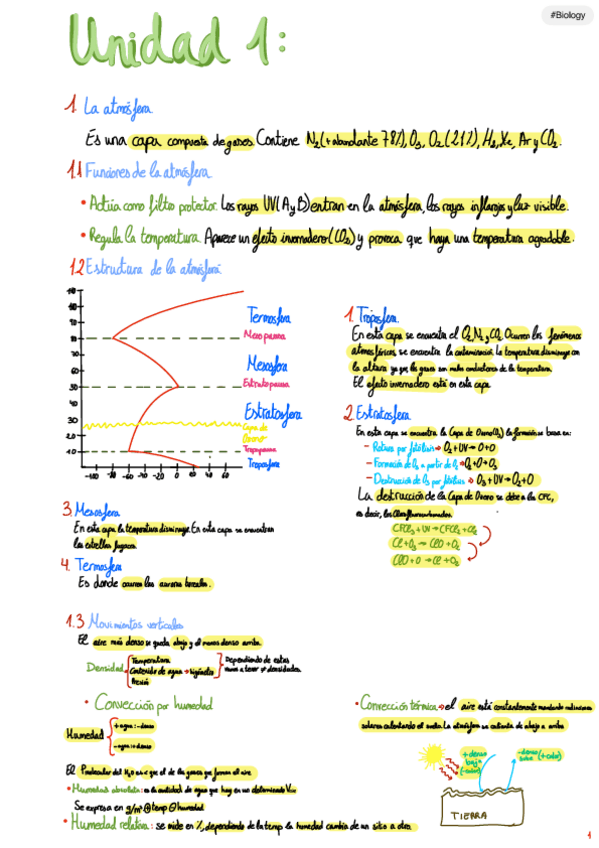 #Biology
Unidad 1:
1. La atmósfera
Es una capa compuesta de gases. Contiene N2 (+ abundante 78%), O3, O2 (21%), He, Xe, Ar y CO2.
1.1 Funciones de la atmósfera
• Actúa como filtro protector. Los rayos UV (A y B) entran en la atmósfera, los rayos infrarojos y luz visible.
• Regula la temperatura. Aparece un efecto invernadero (CO2) y provoca que haya una temperatura agradable.
1.2 Estructura de la atmósfera
Termosfera
Mesopausa
Mesosfera
Estratopausa
Estratosfera
Capa de
Ozono
Tropopausa
Troposfera
1. Troposfera.
En esta capa se encuentra el O2, N2 y CO2. Ocurren los fenómenos
atmosféricos, se encuentra la contaminación. La temperatura disminuye con
la altura ya que los gases son malos conductores de la temperatura.
El efecto invernadero está en esta capa.
2. Estratosfera.
En esta capa se encuentra la Capa de Ozono (O3) la formación se basa en:
- Rotura por fotólisis → O2 + UV → O + O
- Formación de O3 a partir de O2 → O2 + O → O3
- Destrucción de O3 por fotólisis → O3 + UV → O2 + O
La destrucción de la Capa de Ozono se debe a los CFC,
es decir, los Clorofluorocarbonados.
CFCl3 + UV → CFCl2 + Cl
Cl + O3 → ClO + O2
ClO + O → Cl + O2
3. Mesosfera
En esta capa la temperatura disminuye. En esta capa se encuentran
las estrellas fugaces.
4. Termosfera
Es donde ocurren las auroras boreales.
1.3 Movimientos verticales
El aire más denso se queda abajo y el menos denso arriba.
Densidad
Temperatura
Contenido de agua → significa
Presión
Dependiendo de estas
vamos a tener ≠ densidades.
• Convección por humedad
Humedad
+ agua : - denso
- agua : + denso
El Pmolecular del H2O es < que el de los gases que forman el aire
• Humedad absoluta: es la cantidad de agua que hay en un determinado V
Se expresa en g/m3 temp humedad
• Humedad relativa: se mide en %, dependiendo de la temp la humedad cambia de un sitio a otro.
• Convección térmica → el aire está constantemente mandando radiaciones
solares calentando el suelo. La atmósfera se calienta de abajo a arriba
+ denso
baja
(- calor)
- denso
sube (+ calor)
TIERRA
1